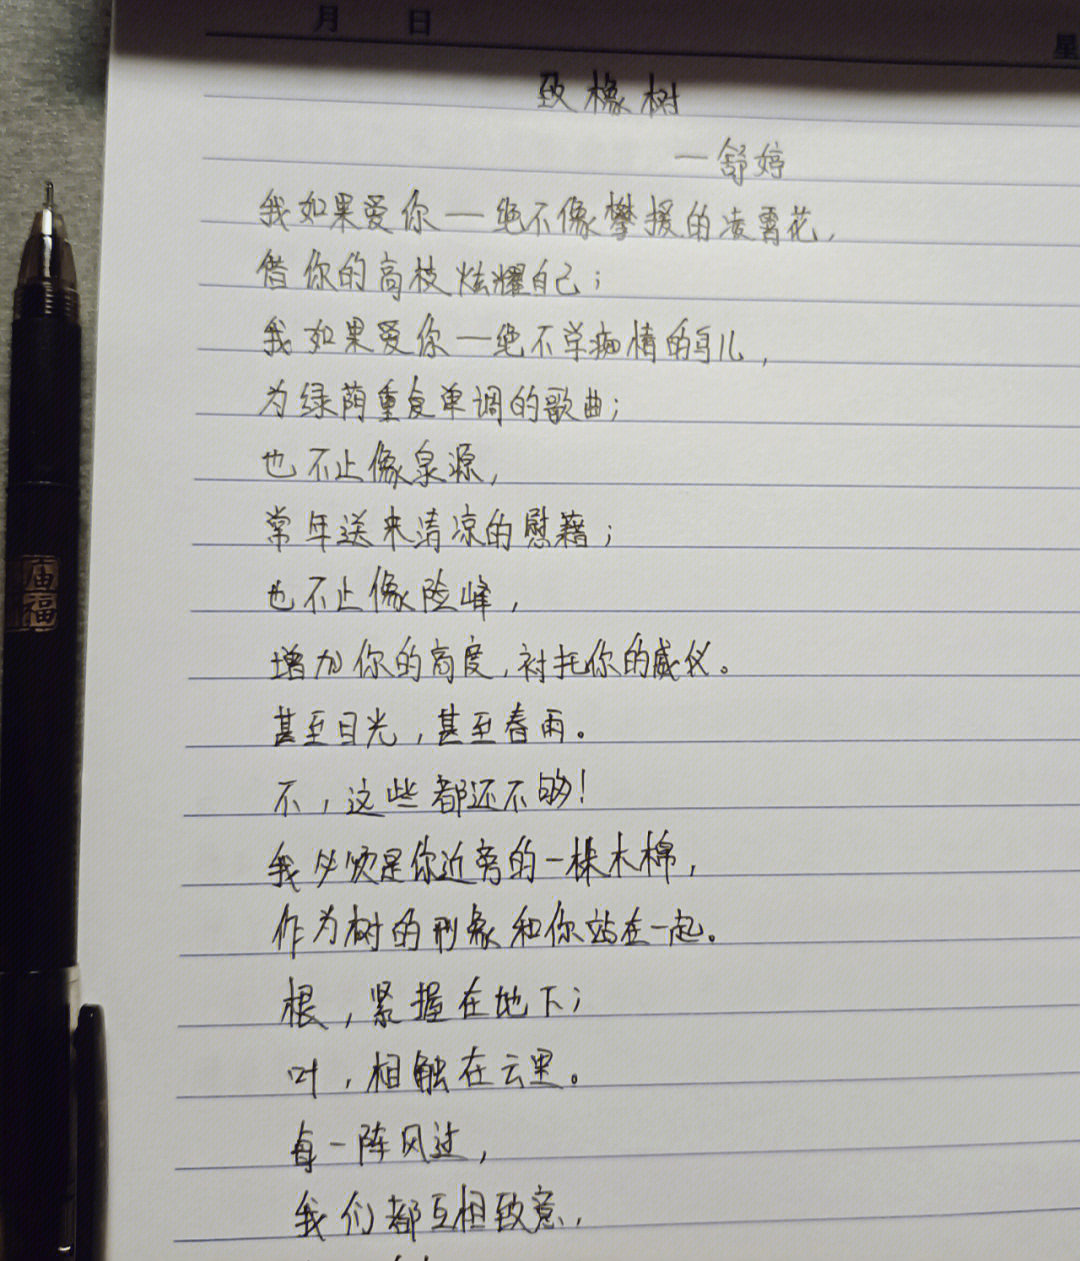 月 日 星
致橡树
—舒婷
我如果爱你—绝不像攀援的凌霄花,
借你的高枝炫耀自己;
我如果爱你—绝不学痴情的鸟儿,
为绿荫重复单调的歌曲;
也不止像泉源,
常年送来清凉的慰藉;
也不止像险峰,
增加你的高度,衬托你的威仪。
甚至日光,甚至春雨。
不,这些都还不够!
我必须是你近旁的一株木棉,
作为树的形象和你站在一起。
根,紧握在地下;
叶,相触在云里。
每一阵风过,
我们都互相致意,
福